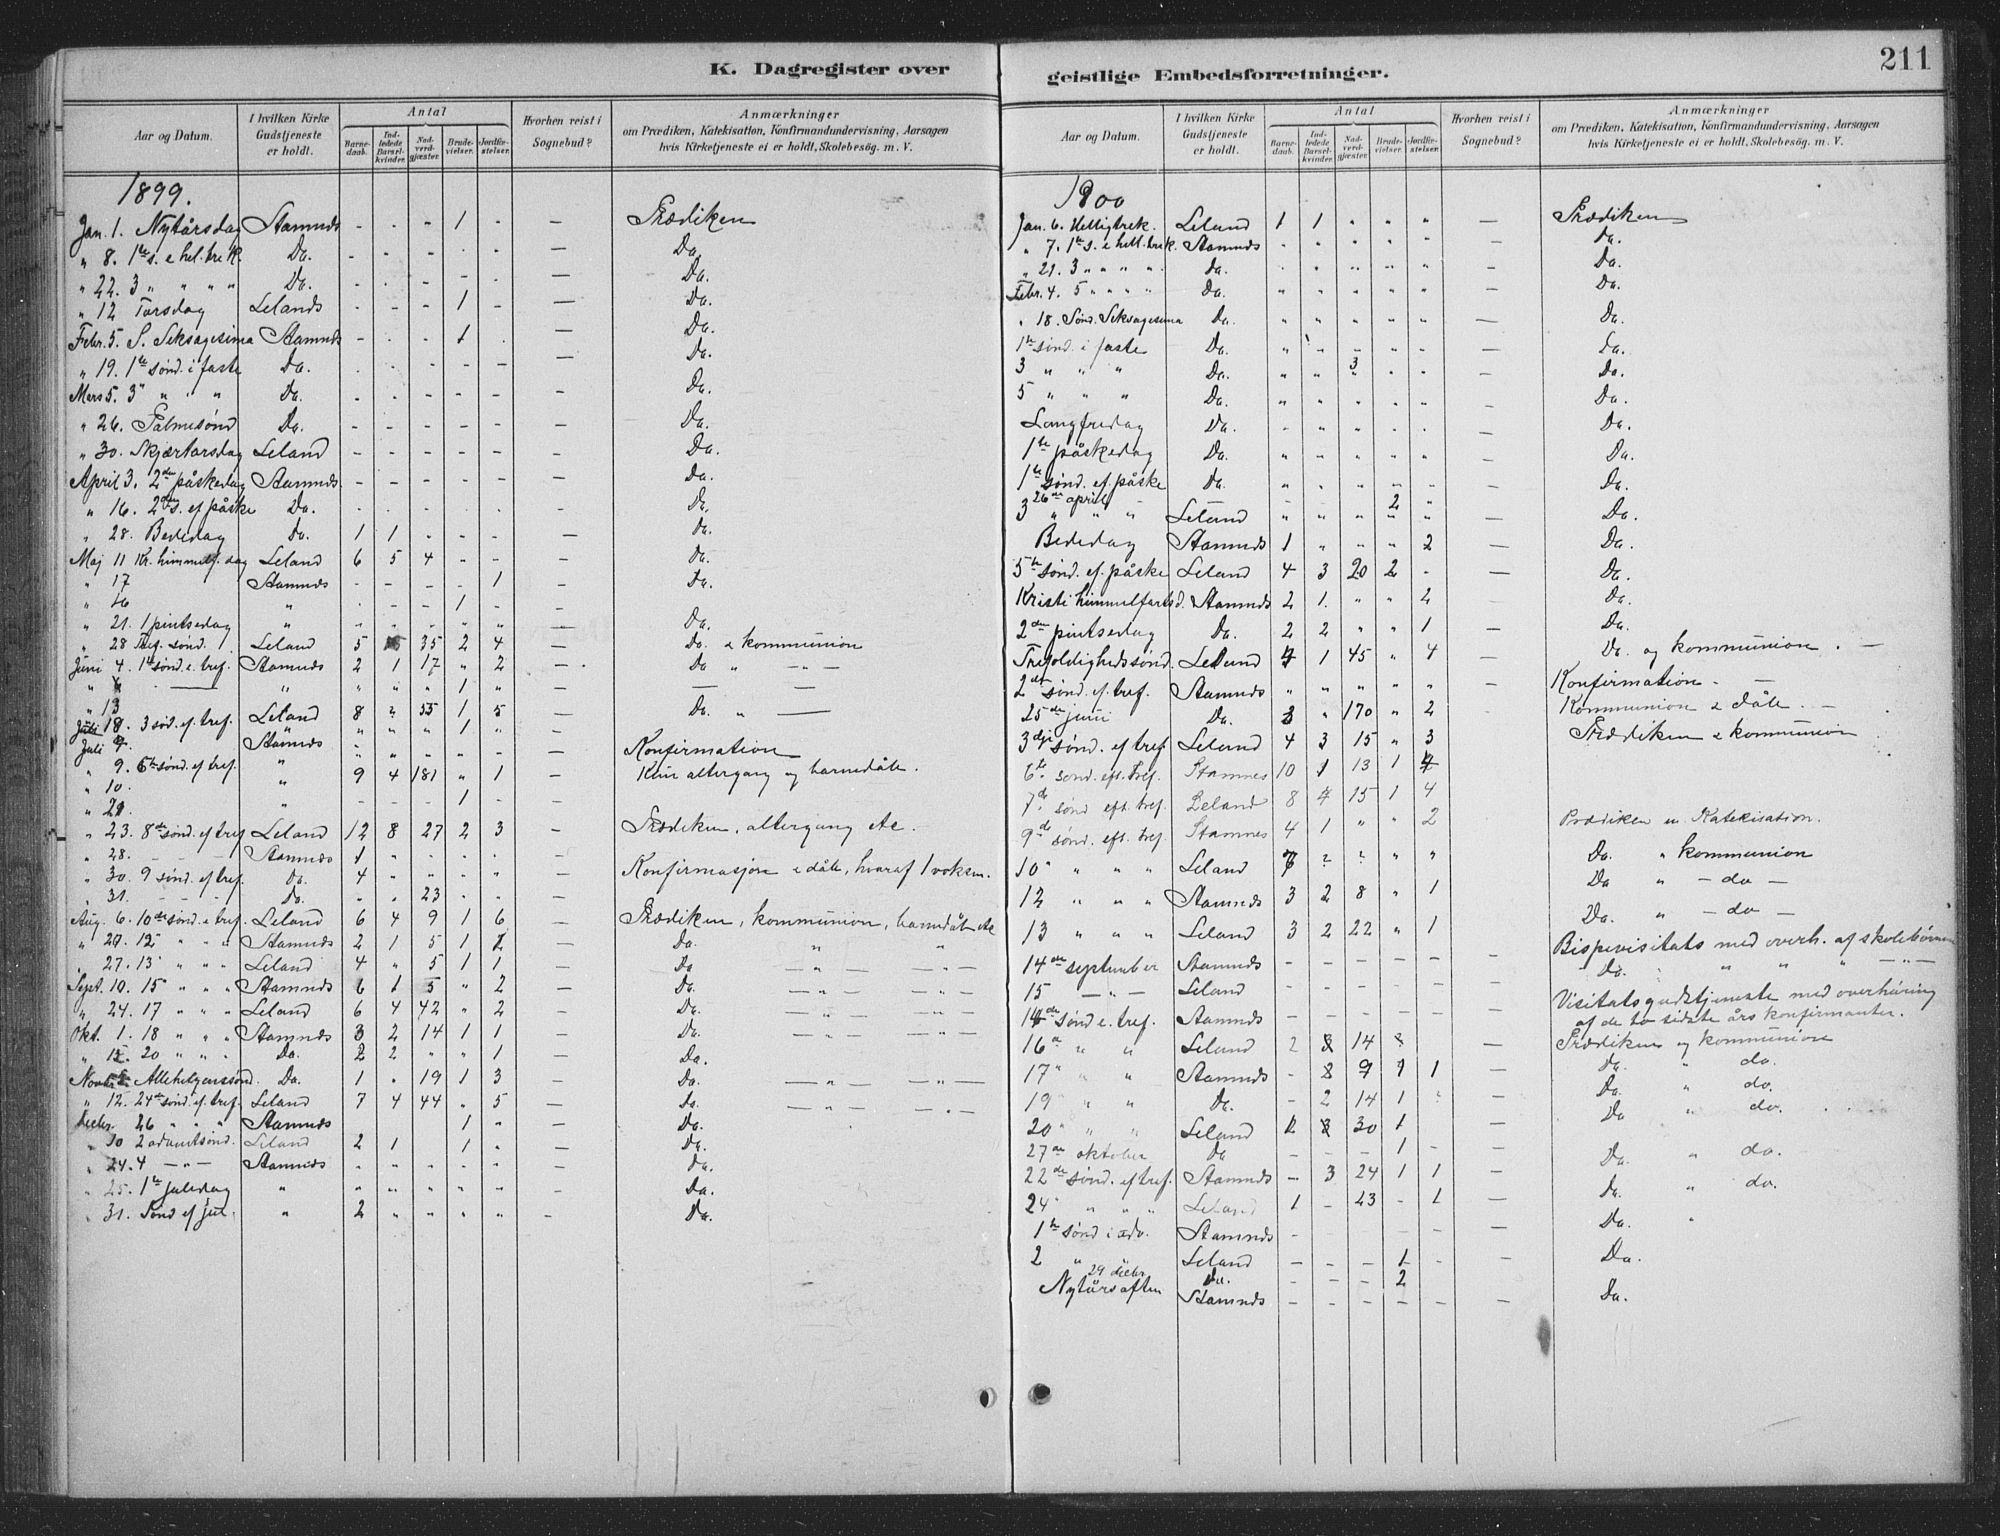 K. Dagregister over
Aar og Datum. I hvilken Kirke Gudstjeneste er holdt. Antal Barnedaab. Indledede Barselkvinder. Nadverdgjæster. Brudevielser. Jordfæstelser. Hvorhen reist i Sognebud? Anmærkninger om Prædiken, Katekisation, Konfirmandundervisning, Aarsagen hvis Kirketjeneste ei er holdt, Skolebesøg. m. V.
1899.
Jan. 1. Nytårsdag Stamnes - - - 1 - — Prædiken
" 8. 1te s. e hel. trek. Da. - - - - - — Da.
" 22. 3 " " " " Da. - - - - - — Da.
" 12 Torsdag Lelands - - - 1 - — Da.
Febr. 5. S. Seksagesima Stamnes - - - 1 - — Da.
" 19. 1te sønd. i faste Da. - - - - - — Da.
Mars 5. 3 " " " Da. - - - - - — Da.
" 26. Palmesønd Da. - - - - - — Da.
" 30. Skjærtorsdag Leland - - - - - — Da.
April 3. 2den påskedag Stamnes - - - - - — Da.
" 16. 2den s. ef påske Da. - - - - - — Da.
" 28. Bededag Da. 1 1 - - - — Da.
Maj 11 Kr. himmelf. dag Leland 6 5 4 - - — Da.
" 17 Stamnes - - - - 1 — Da.
" " - - - 1 -
" 21. 1 pintsedag " " " " " " — Da.
" 28 Tref. sønd. Leland 5 35 2 4 — Da. & kommunion
Juni 4. 1te sønd. e. tref. Stamnes 2 1 17 " 2 — Da " — " —
" — " " " " 1 " — —
" 13
18. 3 sød. ef. tref. Leland 8 2 1 5 — Da. " —
Juli Stamnes " " " 1 "
" 9. 6te sønd. ef tref. " " " " " " — Konfirmation
" 10. " 9 4 181 " 1 — Kun altergang og barnedåb.
" " - - - 1 -
" 23. 8de sønd. ef tref. Leland 12 8 27 2 3 — Prædiken, altergang etc.
" 28. - - - Stamnes 1 " " " "
" 30. 9 sønd. ef tref. Da. 4 " " " " — Konfirmasjon & dåb, hvoraf 1 voksen.
" 31. - - - Da. " " 23 " "
Aug. 6. 10de sønd. e tref. Leland 6 4 9 1 6 — Prædiken, kommunion, barnedåb etc
" 20. 12 " " " Stamnes 2 1 5 1 2 — Da. " "
" 27. 13 " " " Leland 4 " 5 1 1 — Da — " — — " —
Sept. 10. 15 " " " Stamnes 6 1 5 " 2 — Da. — " — — " —
" 24. 17 " " " Leland 6 4 42 " 2 — Da. — " — — " —
Okt. 1. 18 " " " Stamnes 3 2 14 1 1 — Da. — " — — " —
" 15. 20 " " " Da. 2 2 " " 1 — Da.
Novbr. Allehelgenssønd. Da. 1 " 19 1 3 — Da. — " — — " —
" 12. 24de sønd. ef. tref. Leland 7 4 44 " 5 — Da. — " — — " —
Decbr. 26 " " " Stamnes 1 " — Da.
" 10 2 adventsønd. Leland 2 1 1 " — Da.
" 24. 4 — " — Stamnes " " " " " — Da.
" 25. 1te juledag " " " " " " — Da.
" 31. Sønd ef jul. " 2 " " " " - Da.
geistlige Embedsforretninger.
211
Aar og Datum. I hvilken Kirke Gudstjeneste er holdt. Antal Barnedaab. Indledede Barselkvinder. Nadverdgjæster. Brudevielser. Jordfæstelser. Hvorhen reist i Sognebud? Anmærkninger om Prædiken, Katekisation, Konfirmandundervisning, Aarsagen hvis Kirketjeneste ei er holdt, Skolebesøg. m. V.
1900
Jan. 6. Helligtrek. Leland 1 1 " " " — Prædiken
" 7. 1te s. e hell. trek. Stamnes " " " " " — Da.
" 21. 3 " " " " Da. " " " " " — Da.
Febr. 4. 5 " " " " Da. " " " " " — Da.
" 18. Sønd. Seksagesima Da. " " " " " — Da.
1te sønd. i faste Da. " " " " — Da.
3 " " " Da. " " 3 " " — Da.
5 " " " Da. " " " " " — Da.
Langfredag Da. " " " " " — Da.
1te påskedag Da. " " " " " — Da.
1te sønd. ef. påske Da. " " " " " — Da.
26de april - - - 2 "
3 " " " Leland " " " " " — Da.
Bededag Stamnes 1 " " " 2 — Da.
5te sønd. ef. påske Leland 4 3 20 2 - — Da.
Kristi himmelfartsd. Stamnes 2 1. " " 2 — Da.
2den pintsedag Da. 2 2 " " 1 — Da.
Trefoldighedssønd. Leland 1 45 " 4 — Da. og kommunion. —
2den sønd. ef. tref. Stamnes " " " " " — Konfirmation
25de juni Da. " 170 " 2 — Kommunion & dåb.
3dje sønd. ef tref. Leland 4 3 15 " 3 — Prædiken & kommunion
6te sønd. eft. tref. Stamnes 10 1 13 1
7de sønd eft. tref. Leland 8 15 1 4
9de sønd. eft. tref. Stamnes 4 1 " " 2 Prædiken en Katekisation.
10 " " " Leland " " — Da. " kommunion
12 " " " Stamnes 3 2 8 " 1 — Da " — do —
13 " " " Leland 3 2 22 " 1 — Da. " — do —
14de september Stamnes - - - - - — Bispevisitats med overh. af skolebørnen
15 — " — Leland - - - - - — Do. " " " — " —
sønd e. tref. Stamnes - - - - - — Visitatsgudstjeneste med overhøring
af de to sidste års konfirmanter.
16 " " Leland 2 14 — Prædiken og kommunion
17 " " Stamnes - 9 1 1 — Da. " do.
19 " " Da. - 2 14 1 - — Da. " do.
20 " " " Leland 30 1 — Da " do.
27de oktober Da - - - 1 -
22de sønd. ef tref. Stamnes - 3 24 1 1 — Da. " do.
24 " " " Leland 1 - 23 - 1 — Da. " do.
1te sønd i adv. Stamnes - - - - - — Da. "
2 " Leland - - - 1 - — Da.
29 decbr Da. - - - 2
Nytårsaften Stamnes - - - - - — Da.